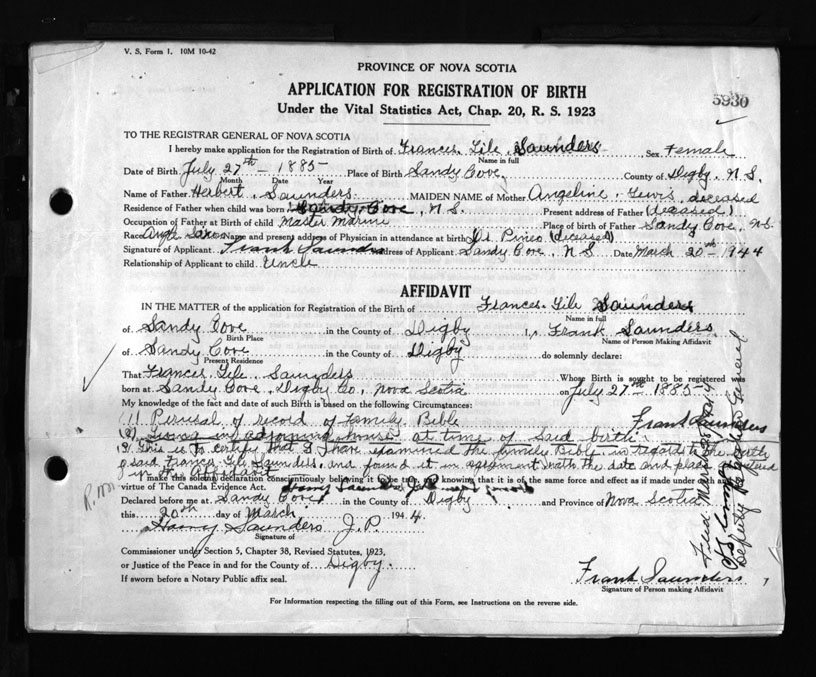 V. S. Form 1. 10M 10-42
PROVINCE OF NOVA SCOTIA
APPLICATION FOR REGISTRATION OF BIRTH
5930
Under the Vital Statistics Act, Chap. 20, R. S. 1923
TO THE REGISTRAR GENERAL OF NOVA SCOTIA
I hereby make application for the Registration of Birth of Frances Lile Saunders Sex Female
Name in full
Date of Birth July 27th 1885 Place of Birth Sandy Cove County of Digby, N.S.
Month Date Year
Name of Father Herbert Saunders MAIDEN NAME of Mother Angeline Lewis, deceased
Residence of Father when child was born Sandy Cove, N.S. Present address of Father (deceased)
Occupation of Father at Birth of child Master Marine Place of birth of Father Sandy Cove, N.S.
Race Anglo Saxon Name and present address of Physician in attendance at birth Dr. Pineo (deceased)
Signature of Applicant Frank Saunders Address of Applicant Sandy Cove, N.S. Date March 20th 1944
Relationship of Applicant to child Uncle
AFFIDAVIT
IN THE MATTER of the application for Registration of the Birth of Frances Lile Saunders
Name in full
of Sandy Cove in the County of Digby I, Frank Saunders
Birth Place Name of Person Making Affidavit
of Sandy Cove in the County of Digby do solemnly declare:
Present Residence
That Frances Lile Saunders Whose Birth is sought to be registered was
born at Sandy Cove, Digby Co, Nova Scotia on July 27th 1885
My knowledge of the fact and date of such Birth is based on the following Circumstances:
(1) Perusal of record of family Bible
Frank Saunders
(2) Living in adjoining house at time of said birth.
This is to certify that I have examined the family Bible in regards to the birth
of said Frances Lile Saunders, and found it in agreement with the date and place
in the Affidavit
I make this solemn declaration conscientiously believing it to be true, and knowing that it is of the same force and effect as if made under oath and by
virtue of The Canada Evidence Act. Harry Saunders
Declared before me at Sandy Cove in the County of Digby and Province of Nova Scotia
this 20th day of March 1944
Harry Saunders J.P.
Signature of
Commissioner under Section 5, Chapter 38, Revised Statutes, 1923,
or Justice of the Peace in and for the County of Digby.
If sworn before a Notary Public affix seal.
Frank Saunders
Signature of Person making Affidavit
For Information respecting the filling out of this Form, see Instructions on the reverse side.
Deputy Registrar General